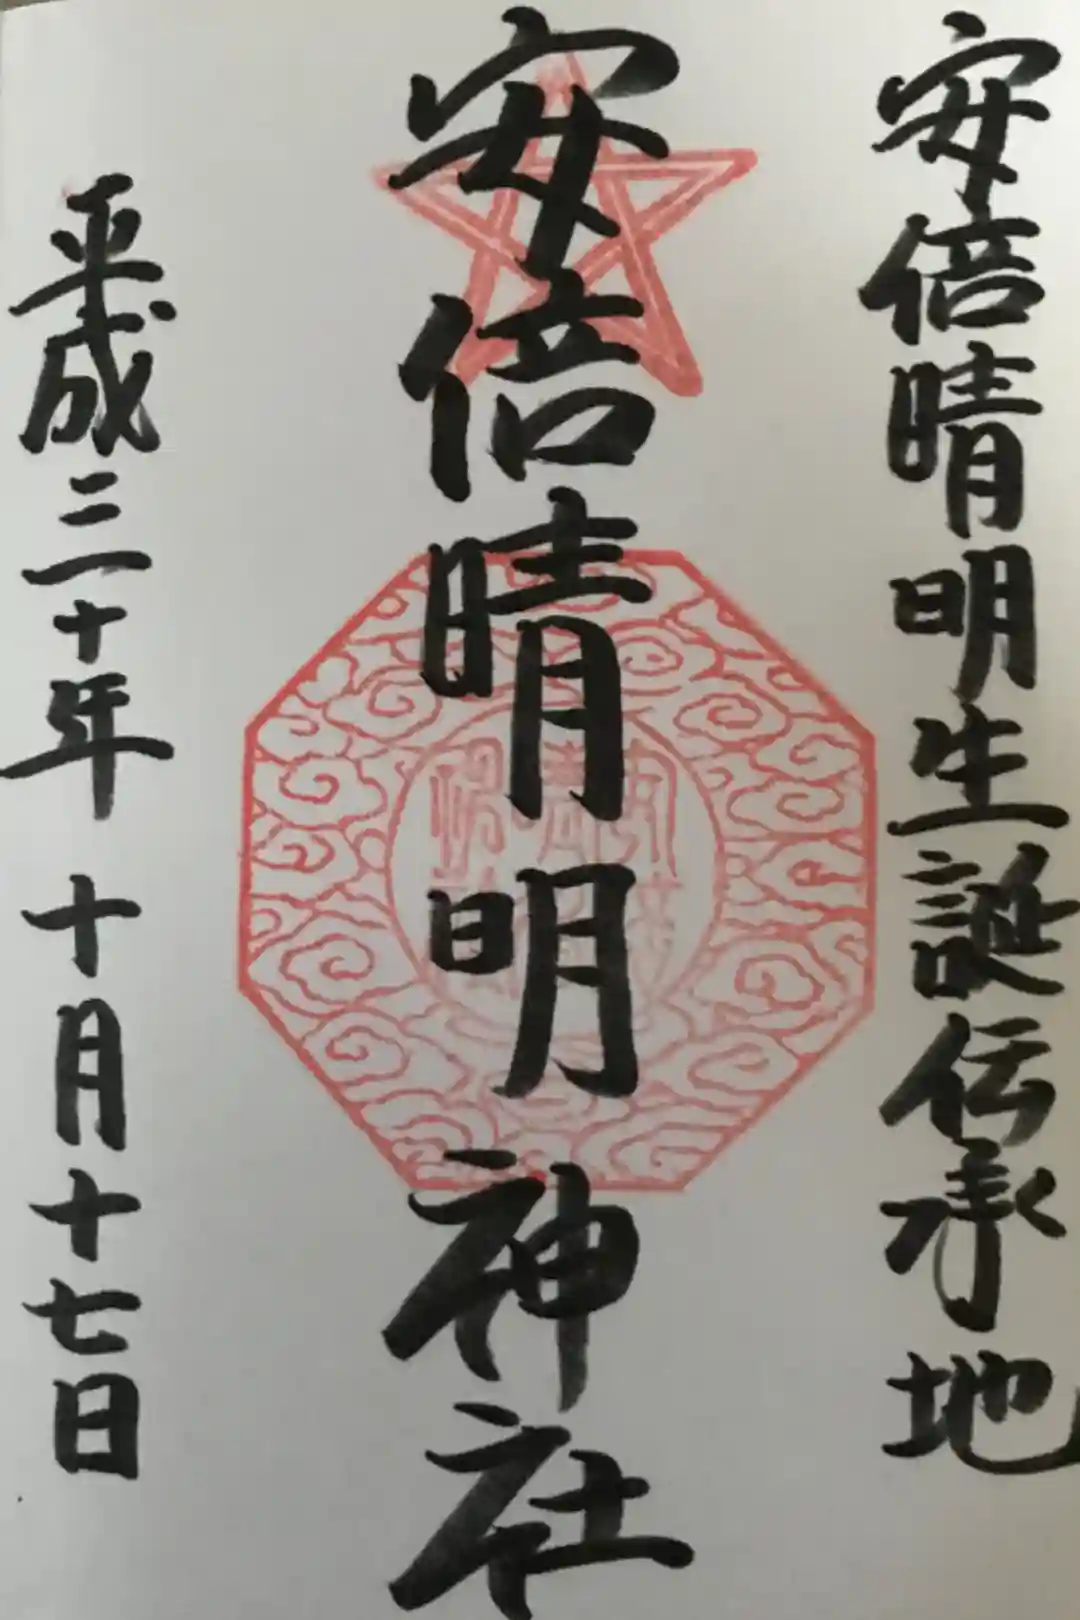 安倍晴明生誕伝承地
安倍晴明神社
平成三十年 十月十七日